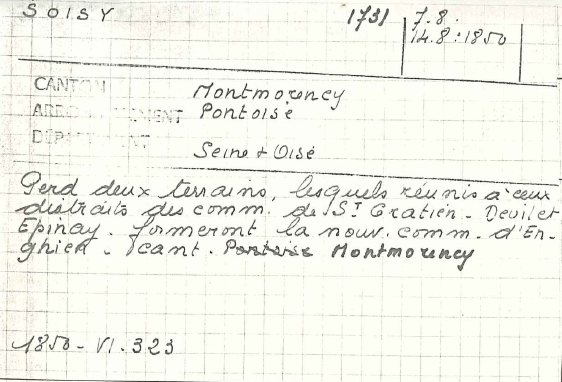 SOISY 1731 7.8.
14.8:1850
CANTON Montmorency
ARRONDISSEMENT Pontoise
DEPARTEMENT
Seine & Oise
Perd deux terrains, lesquels réunis à ceux
distraits des comm. de St Gratien - Deuil et
Epinay - formeront la nouv. comm. d'En-
ghien - cant. Pontoise Montmorency
1850 - VI. 323